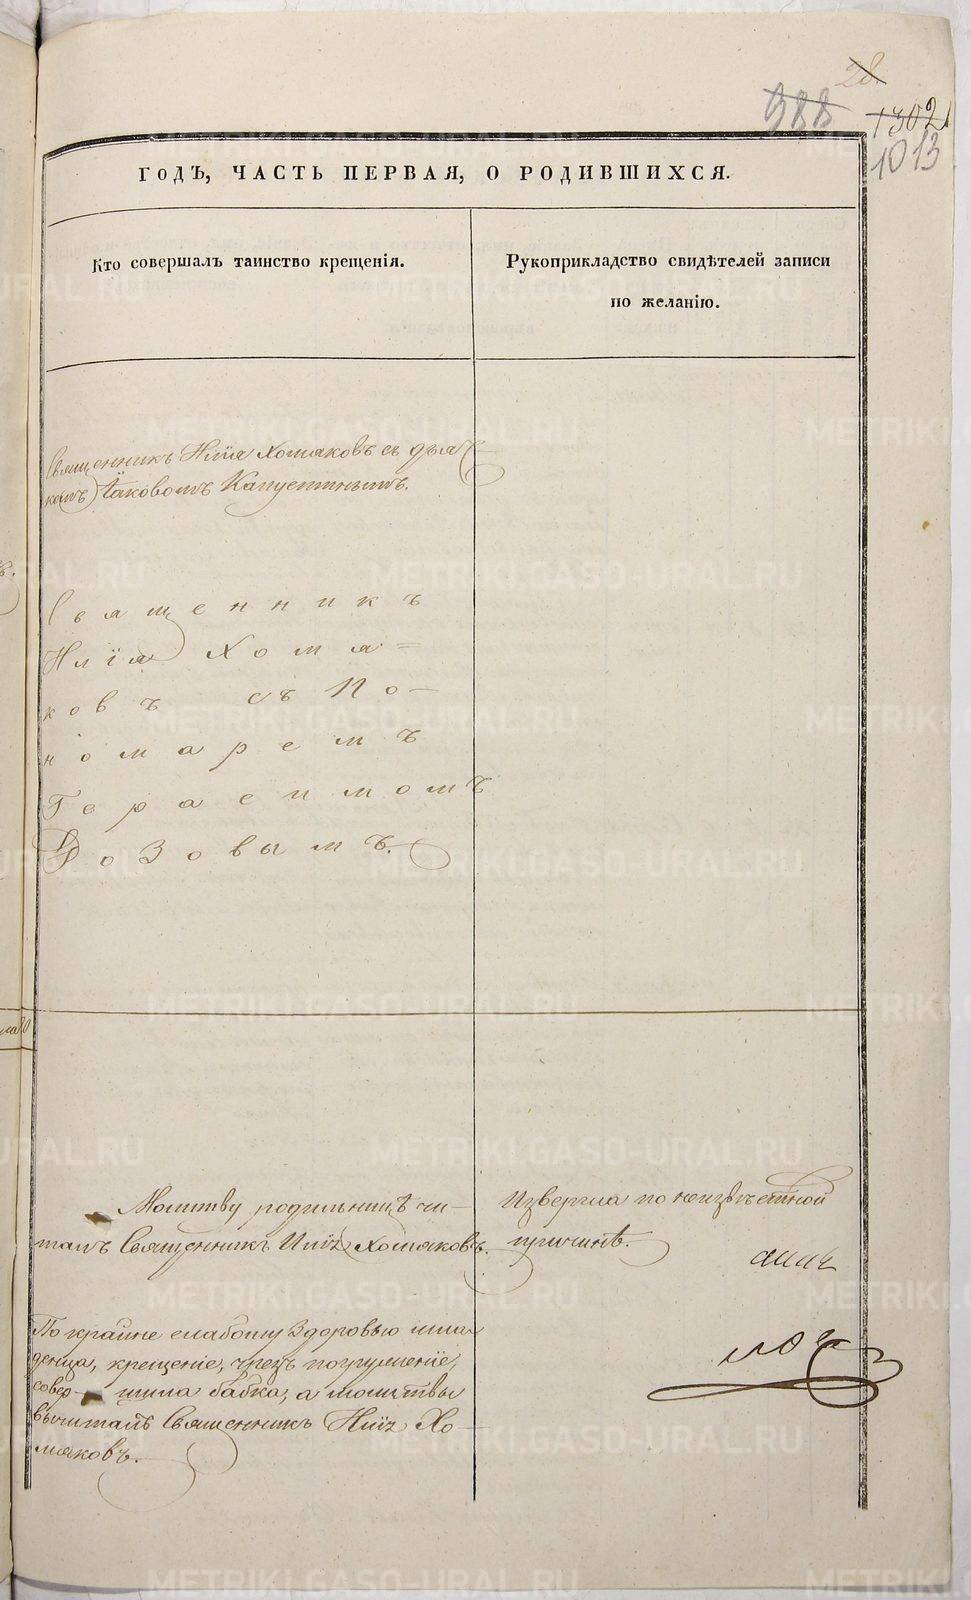 28.
988
1302
1013
ГОДЪ, ЧАСТЬ ПЕРВАЯ, О РОДИВШИХСЯ.
Кто совершалъ таинство крещенія.
Рукоприкладство свидѣтелей записи
по желанію.
Священникъ Илія Хомяковъ съ дья-
комъ Іаковомъ Капустинымъ.
Священникъ
Илія Хомя=
ковъ съ По-
номаремъ
Герасимомъ
Розовымъ.
Молитву родильницѣ чи-
талъ Священникъ Иліа Хомяковъ.
Извергла по неизвѣстной
причинѣ.
По крайне слабому здоровью мла-
денца, крещеніе, чрезъ погруженіе,
совер- шила бабка, а молитвы
вычиталъ Священникъ Иліа Хо-
мяковъ.
METRIKI.GASO-URAL.RU